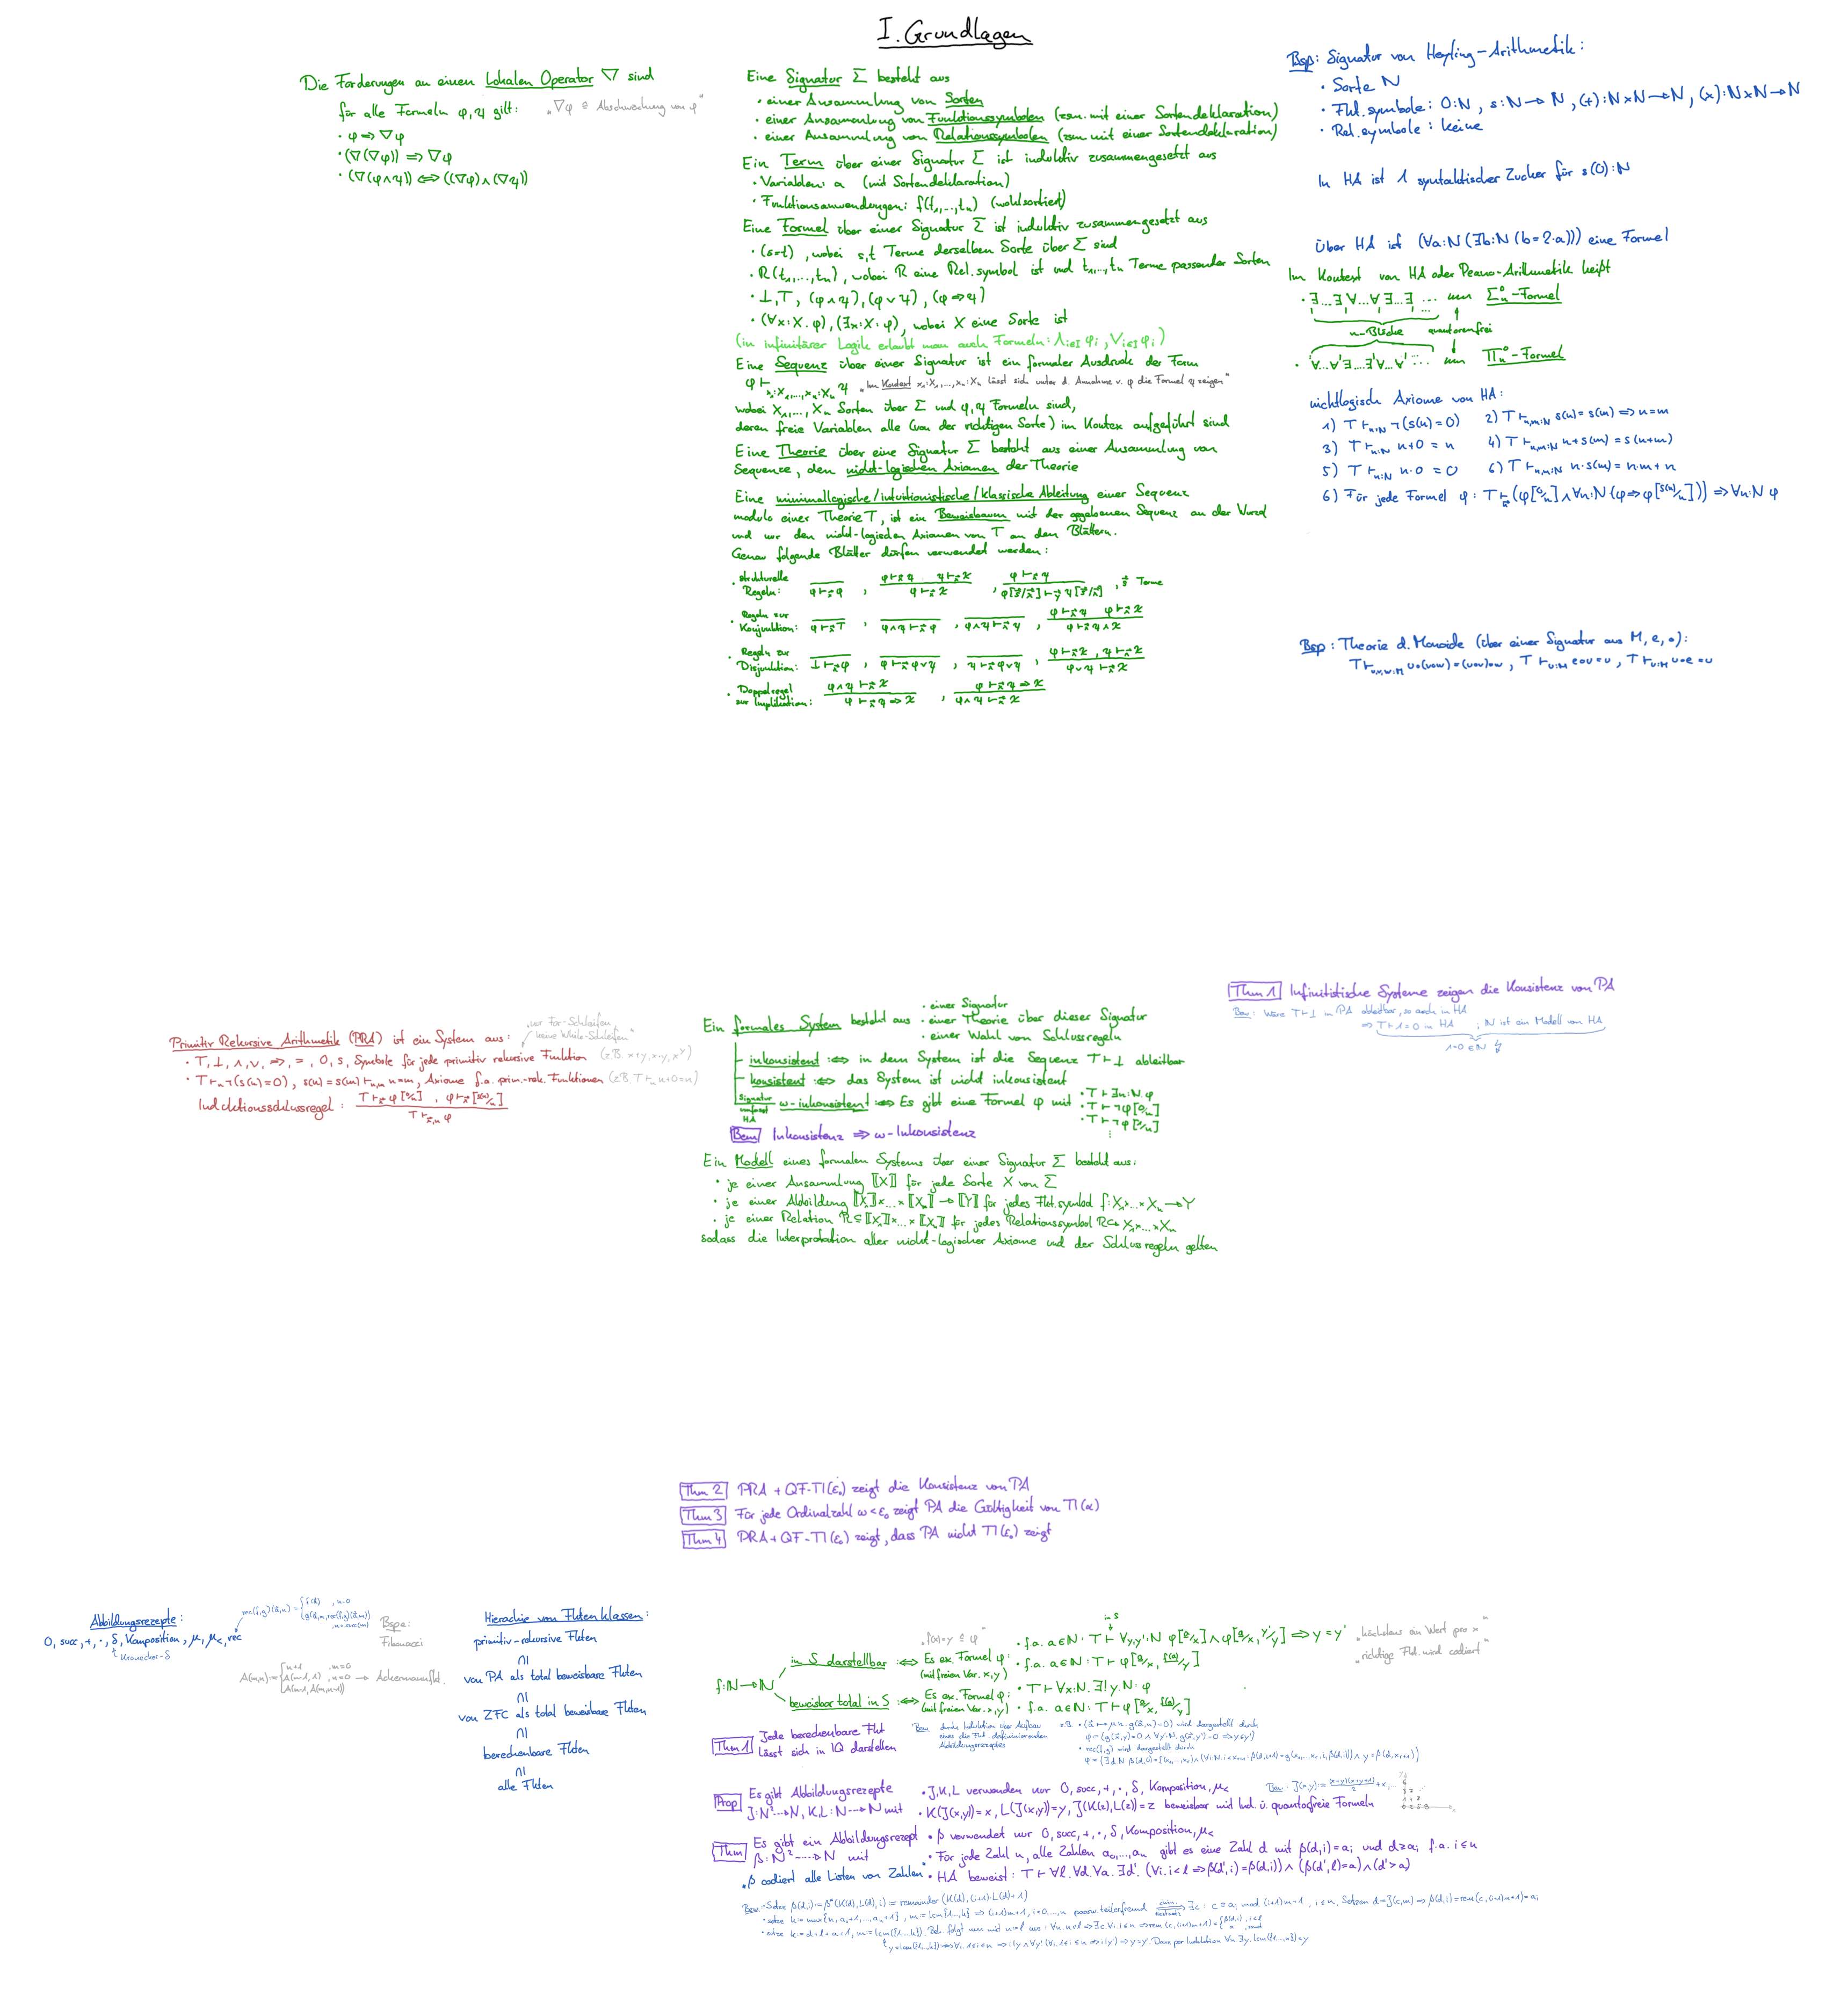 I. Grundlagen
Die Forderungen an einen Lokalen Operator ∇ sind
für alle Formeln φ,ψ gilt: „∇φ ≙ Abschwächung von φ"
· φ ⇒ ∇φ
· (∇(∇φ)) ⇒ ∇φ
· (∇(φ∧ψ)) ⇔ ((∇φ)∧(∇ψ))
Eine Signatur Σ besteht aus
· einer Ansammlung von Sorten
· einer Ansammlung von Funktionssymbolen (zsm. mit einer Sortendeklaration)
· einer Ansammlung von Relationssymbolen (zsm mit einer Sortendeklaration)
Ein Term über einer Signatur Σ ist induktiv zusammengesetzt aus
· Variablen: a (mit Sortendeklaration)
· Funktionsanwendungen: f(t₁,...,tₙ) (wohlsortiert)
Eine Formel über einer Signatur Σ ist induktiv zusammengesetzt aus
· (s=t), wobei s,t Terme derselben Sorte über Σ sind
· R(t₁,...,tₙ), wobei R eine Rel.symbol ist und t₁,...,tₙ Terme passender Sorten
· ⊥,⊤, (φ∧ψ), (φ∨ψ), (φ⇒ψ)
· (∀x:X. φ), (∃x:X: φ), wobei X eine Sorte ist
(in infinitärer Logik erlaubt man auch Formeln: ⋀i∈I φi, ⋁i∈I φi)
Eine Sequenz über einer Signatur ist ein formaler Ausdruck der Form
φ ⊢x₁:X₁,...,xₙ:Xₙ ψ „Im Kontext x₁:X₁,...,xₙ:Xₙ lässt sich unter d. Annahme v. φ die Formel ψ zeigen"
wobei X₁,..., Xₙ Sorten über Σ und φ,ψ Formeln sind,
deren freie Variablen alle (von der richtigen Sorte) im Kontex aufgeführt sind
Eine Theorie über eine Signatur Σ besteht aus einer Ansammlung von
Sequence, den nicht-logischen Axiomen der Theorie
Eine minimallogische/intuitionistische/klassische Ableitung einer Sequenz
modulo einer Theorie T, ist ein Beweisbaum mit der gegebenen Sequenz an der Wurzel
und nur den nicht-logischen Axiomen von T an den Blättern.
Genau folgende Blätter dürfen verwendet werden:
· strukturelle Regeln: ─ / φ ⊢x⃗ φ , φ ⊢x⃗ ψ ψ ⊢x⃗ χ / φ ⊢x⃗ χ , φ ⊢x⃗ ψ / φ[s⃗/x⃗] ⊢y⃗ ψ[s⃗/x⃗] , s⃗ Terme
· Regeln zur Konjunktion: ─ / φ ⊢x⃗ ⊤ , ─ / φ∧ψ ⊢x⃗ φ , ─ / φ∧ψ ⊢x⃗ ψ , φ ⊢x⃗ ψ φ ⊢x⃗ χ / φ ⊢x⃗ ψ∧χ
· Regeln zur Disjunktion: ─ / ⊥ ⊢x⃗ φ , ─ / φ ⊢x⃗ φ∨ψ , ─ / ψ ⊢x⃗ φ∨ψ , φ ⊢x⃗ χ , ψ ⊢x⃗ χ / φ∨ψ ⊢x⃗ χ
· Doppelregel zur Implikation: φ∧ψ ⊢x⃗ χ / φ ⊢x⃗ ψ ⇒ χ , φ ⊢x⃗ ψ ⇒ χ / φ∧ψ ⊢x⃗ χ
Bsp: Signatur von Heyting-Arithmetik:
· Sorte N
· Fkt.symbole: 0:N , s:N→N , (+):N×N→N, (×):N×N→N
· Rel.symbole: keine
In HA ist 1 syntaktischer Zucker für s(0):N
Über HA ist (∀a:N (∃b:N (b=2·a))) eine Formel
Im Kontext von HA oder Peano-Arithmetik heißt
· ∃...∃ ∀...∀ ∃...∃ ... Σₙ⁰-Formel
n-Blöcke quantorenfrei
· ∀...∀ ∃...∃ ∀...∀ ... Πₙ⁰-Formel
nichtlogisch Axiome von HA:
1) ⊤ ⊢n:N ¬(s(n)=0) 2) ⊤ ⊢n,m:N s(n)=s(m) ⇒ n=m
3) ⊤ ⊢n:N n+0 = n 4) ⊤ ⊢n,m:N n+s(m) = s(n+m)
5) ⊤ ⊢n:N n·0 = 0 6) ⊤ ⊢n,m:N n·s(m) = n·m + n
6) Für jede Formel φ: ⊤ ⊢x⃗ (φ[0/n] ∧ ∀n:N (φ⇒φ[s(n)/n])) ⇒ ∀n:N φ
Bsp: Theorie d. Monoide (über einer Signatur aus M, e, ∘):
⊤ ⊢u,v,w:M u∘(v∘w)=(u∘v)∘w , ⊤ ⊢u:M e∘u=u , ⊤ ⊢u:M u∘e=u
Primitiv Rekursive Arithmetik (PRA) ist ein System aus: „nur For-Schleifen, keine While-Schleifen"
· ⊤,⊥,∧,∨,⇒,=, 0, s, Symbole für jede primitiv rekursive Funktion (z.B. x+y, x·y, xʸ)
· ⊤ ⊢n ¬(s(n)=0), s(n)=s(m) ⊢n,m n=m, Axiome f.a. prim.-rek. Funktionen (z.B. ⊤ ⊢n n+0=n)
Induktionsschlussregel: ⊤ ⊢x⃗ φ[0/n] , φ ⊢x⃗ φ[s(n)/n] / ⊤ ⊢x⃗,n φ
Ein formales System besteht aus
· einer Signatur
· einer Theorie über dieser Signatur
· einer Wahl von Schlussregeln
inkonsistent :⇔ in dem System ist die Sequenz ⊤⊢⊥ ableitbar
konsistent :⇔ das System ist nicht inkonsistent
Signatur umfasst HA ω-inkonsistent :⇔ Es gibt eine Formel φ mit · ⊤ ⊢ ∃n:N. φ
· ⊤ ⊢ ¬φ[0/n]
· ⊤ ⊢ ¬φ[1/n]
⋮
Bem Inkonsistenz ⇒ ω-Inkonsistenz
Ein Modell eines formalen Systems über einer Signatur Σ besteht aus:
· je einer Ansammlung ⟦X⟧ für jede Sorte X von Σ
· je einer Abbildung ⟦X₁⟧×...×⟦Xₙ⟧ → ⟦Y⟧ für jedes Fkt.symbol f:X₁×...×Xₙ→Y
· je einer Relation R⊆⟦X₁⟧×...×⟦Xₙ⟧ für jedes Relationssymbol R↪X₁×...×Xₙ
sodass die Interpretation aller nicht-logischer Axiome und der Schlussregeln gelten
Thm 1 Infinitistische Systeme zeigen die Konsistenz von PA
Bew: Wäre ⊤⊢⊥ in PA ableitbar, so auch in HA
⇒ ⊤⊢1=0 in HA ; N ist ein Modell von HA
1=0 ∈ N ↯
Thm 2 PRA + QF-TI(ε₀) zeigt die Konsistenz von PA
Thm 3 Für jede Ordinalzahl ω<ε₀ zeigt PA die Gültigkeit von TI(α)
Thm 4 PRA+QF-TI(ε₀) zeigt, dass PA nicht TI(ε₀) zeigt
Abbildungsrezepte:
0, succ, +, ·, δ, Komposition, μ, μ<, rec
Kronecker-δ
rec(f,g)(a⃗,n) = { f(a⃗) , n=0
g(a⃗,m,rec(f,g)(a⃗,m)) , n=succ(m)
Bspe:
Fibonacci
A(m,n) := { n+1 , m=0
A(m-1,1) , n=0 → Ackermannfkt.
A(m-1,A(m,n-1))
Hierachie von Fktenklassen:
primitiv-rekursive Fkten
∩|
von PA als total beweisbare Fkten
∩|
von ZFC als total beweisbare Fkten
∩|
berechenbare Fkten
∩|
alle Fkten
f:N→N
in S
„f(x)=y ≙ φ"
in S darstellbar :⇔ Es ex. Formel φ: (mit freien Var. x,y)
· f.a. a∈N: ⊤ ⊢ ∀y,y':N φ[a/x] ∧ φ[a/x, y'/y] ⇒ y=y' „höchstens ein Wert pro x"
· f.a. a∈N: ⊤ ⊢ φ[a/x, f(a)/y] „richtige Fkt. wird codiert"
beweisbar total in S :⇔ Es ex. Formel φ: (mit freien Var. x,y)
· ⊤ ⊢ ∀x:N. ∃!y:N. φ
· f.a. a∈N: ⊤ ⊢ φ[a/x, f(a)/y]
Thm 1 Jede berechenbare Fkt
lässt sich in IQ darstellen
Bew durch Induktion über Aufbau
eines die Fkt. definierenden
Abbildungsrezeptes
z.B. · (a⃗ ↦ μn. g(a⃗,n)=0) wird dargestellt durch
φ = (g(x⃗,y)=0 ∧ ∀y':N. g(x⃗,y')=0 ⇒ y≤y')
· rec(f,g) wird dargestellt durch
Prop Es gibt Abbildungsrezepte
J:N²⇢N, K,L:N⇢N mit
· J,K,L verwenden nur 0, succ, +, ·, δ, Komposition, μ<
· K(J(x,y))=x, L(J(x,y))=y, J(K(z),L(z))=z beweisbar mid Ind. ü. quantorfreie Formeln
Bew: J(x,y) := (x+y)(x+y+1)/2 + x, ...
Thm Es gibt ein Abbildungsrezept
β:N²⇢N mit
· β verwendet nur 0, succ, +, ·, δ, Komposition, μ<
· Für jede Zahl n, alle Zahlen a₀,...,aₙ gibt es eine Zahl d mit β(d,i)=aᵢ und d≥aᵢ f.a. i≤n
„β codiert alle Listen von Zahlen"
· HA beweist: ⊤ ⊢ ∀l. ∀d. ∀a. ∃d'. (∀i. i<l ⇒ β(d',i)=β(d,i)) ∧ (β(d',l)=a) ∧ (d'>a)
Bew: · Setze β(d,i) := β*(K(d),L(d),i) = remainder(K(d),(i+1)·L(d)+1)